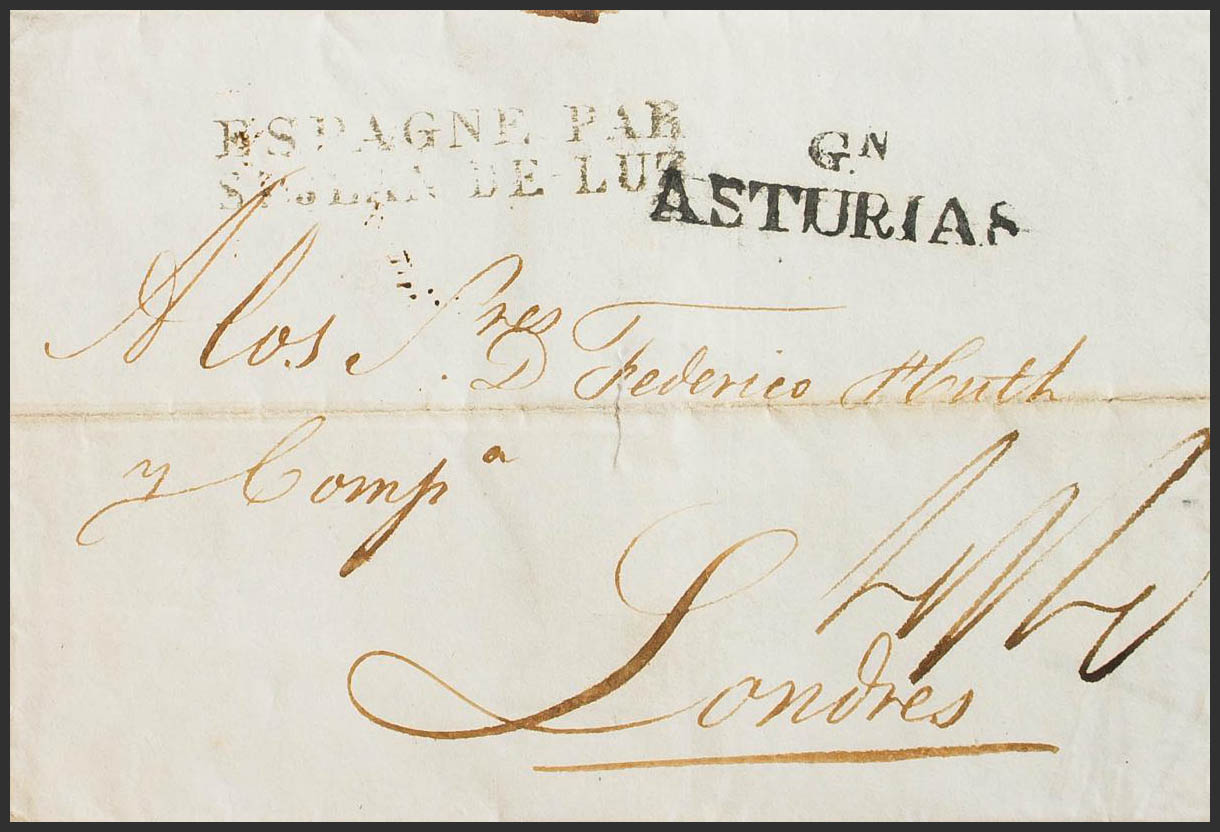 ESPAGNE PAR
ST JEAN DE LUZ
Gᴺ
ASTURIAS
A los Sʳᵉˢ D Federico Huth
y Compᵃ
Londres